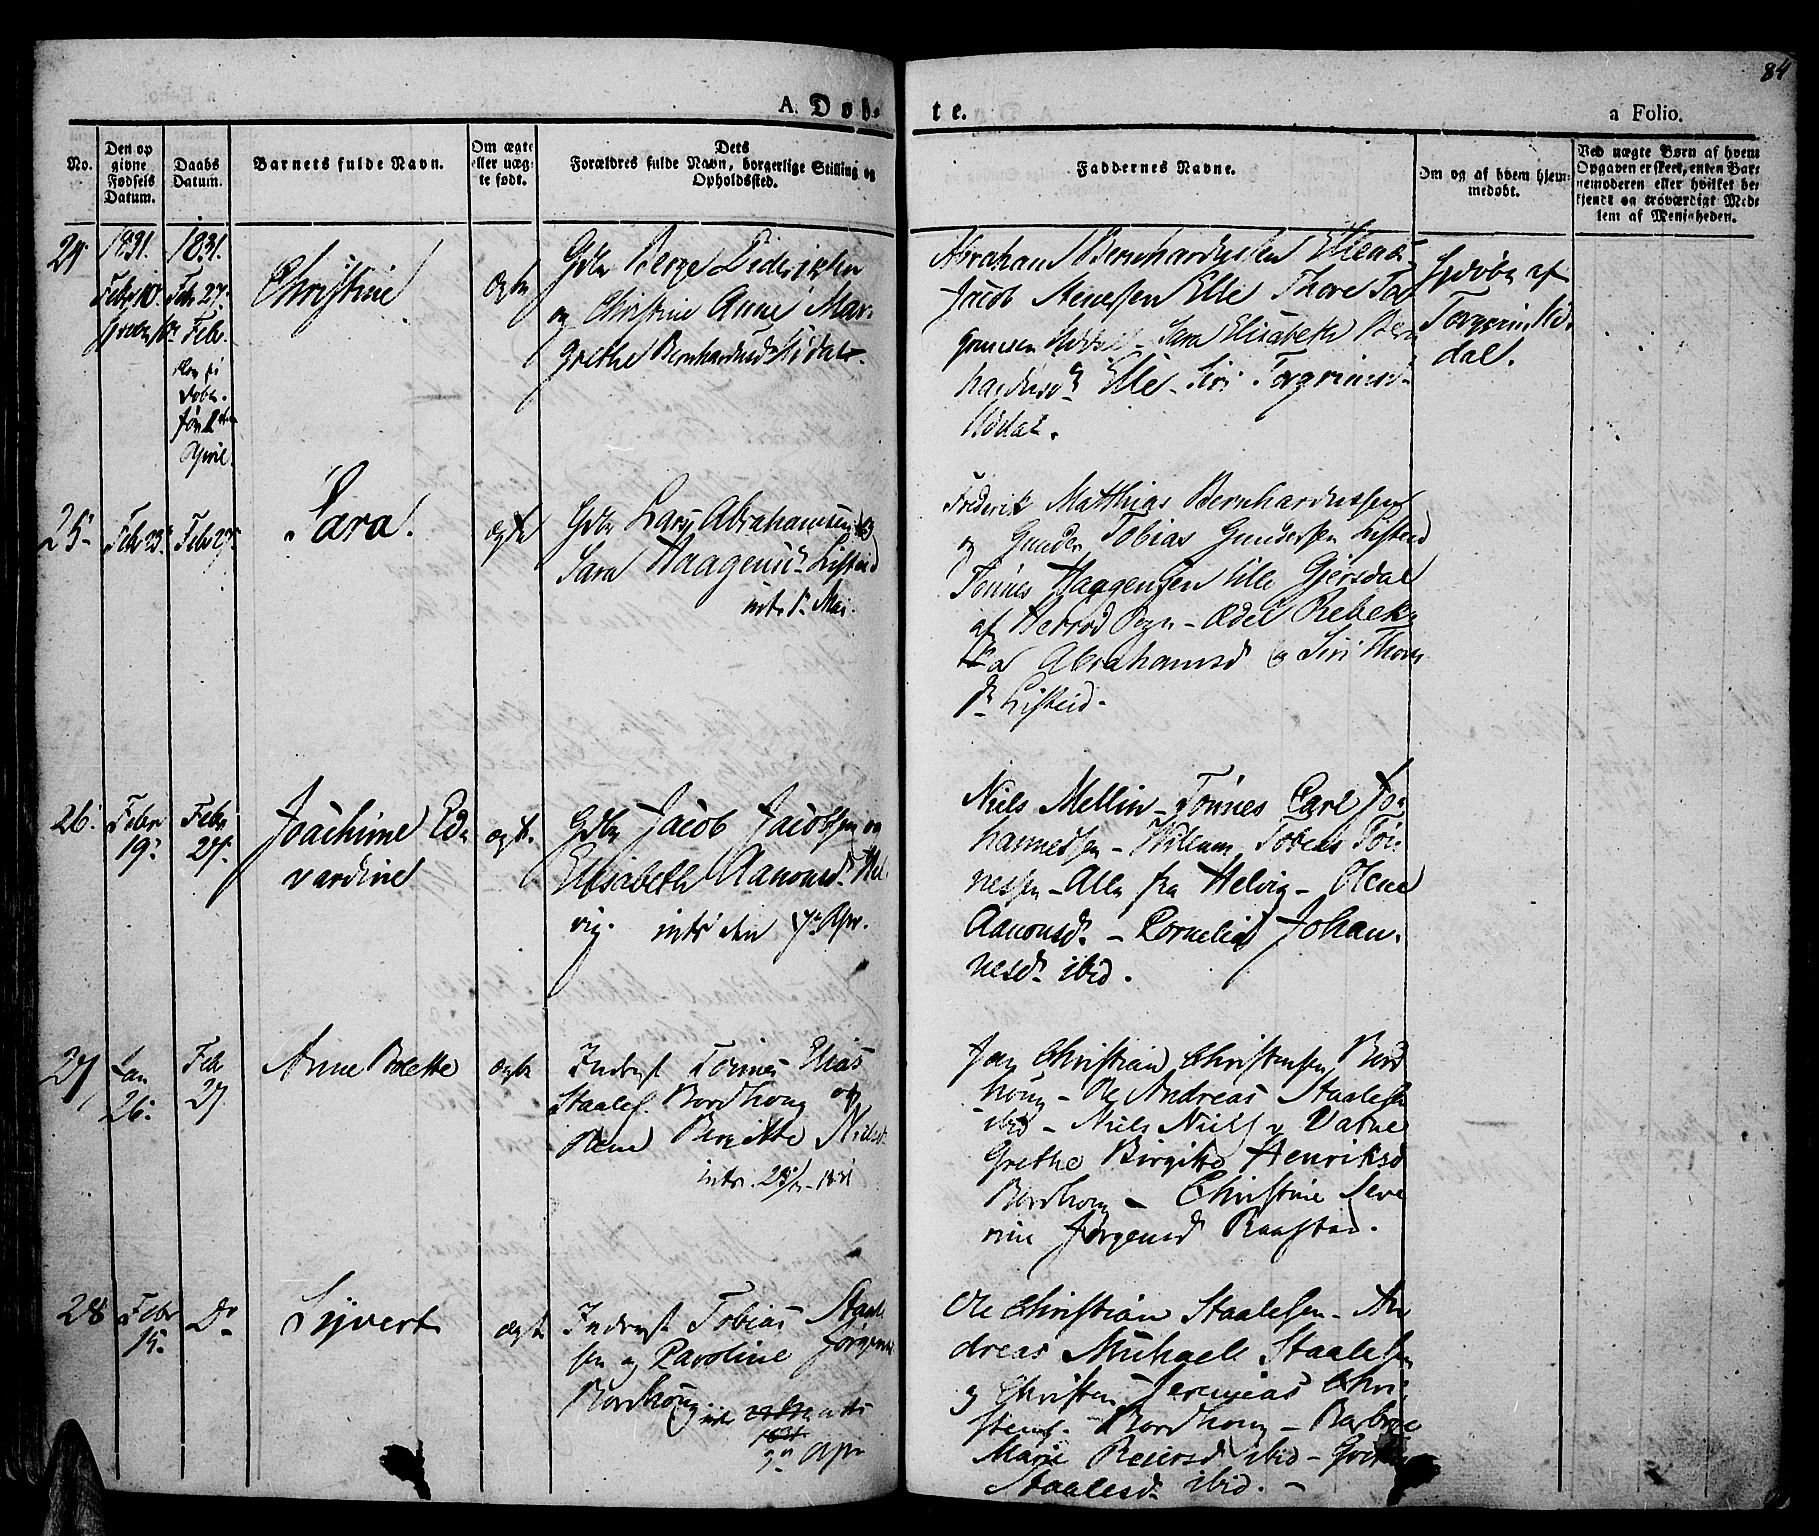 84
A. Døb-
te.
a Folio.
No.
Den op
givne
Fødsels
Datum.
Daabs
Datum.
Barnets fulde Navn.
Om ægte
eller uæg-
te født.
Dets
Forældres fulde Navn, borgerlige Stilling og
Opholdssted.
Faddernes Navne.
Om og af hvem hjem-
medøbt.
Ved uægte Børn af hvem
Opgaven er skeet, enten Bar-
nemoderen eller hvilket be-
kjendt og troværdigt Med-
lem af Menigheden.
24
1831.
Febr
1831.
Febr 27
Febr.
April.
Christine
ægte
Gdbr Berge Didriksen
og Christine Anne Mar-
grethe Bernhardusd
Abraham Bernhardussen Elle
Jacob Stenessen Elle Thore Tor
Sara Elisabeth Bern
hardusd Elle Siri Torgrimsd
Hjdøbt af
Torgrim
dal.
25
Febr 23
Febr 27
Sara.
ægte
Gdbr Lars Abrahamsen og
Sara Haagensd Listeid
intr Mai.
Frederik Matthias Bernhardussen
og Gunder Tobias Gundersen Listeid
Tønnes Haagensen Gjersdal
af Herrød Sogn - Edel Rebek
ka Abrahamsd og Siri Thors
dr Listeid.
26
Febr
19
Febr
27
Joachime Ed-
vardine
ægte
Gdbr Jacob Jacobsen og
Elisabeth Aanonsd Hel-
vig. intr den 7 Apr.
Niels Mellin - Tønnes Carl Jo-
hannessen - Willum Tobias Tøn
nessen - Alle fra Helvig - Olene
Aanonsd. - Cornelia Johan-
nesd ibid.
27
Jan
26
Feb
27
Anne Bolette
ægte
Inderst Tønnes Elias
Staales. Bordhoug og
Bergitte Nielsd
intr.
Jens Christian Christensen Bord
houg - Ole Andreas Staalesen
ibid - Niels Niels Vatne
Grethe Birgitte Henriksd
Bordhoug - Christine Seve
rine Jørgensd Raastad.
28
Febr
15
Do
Syvert
ægte
Inderst Tobias Staale
sen og Caroline Jørgensd
Bordhoug.
Apr
Ole Christian Staalesen - An
dreas Michael Staalesen
og Christen Jeremias Chri
stens. Bordhoug - Barbroe
Marie Reiersd ibid - Grethe
Staalesd ibid. -